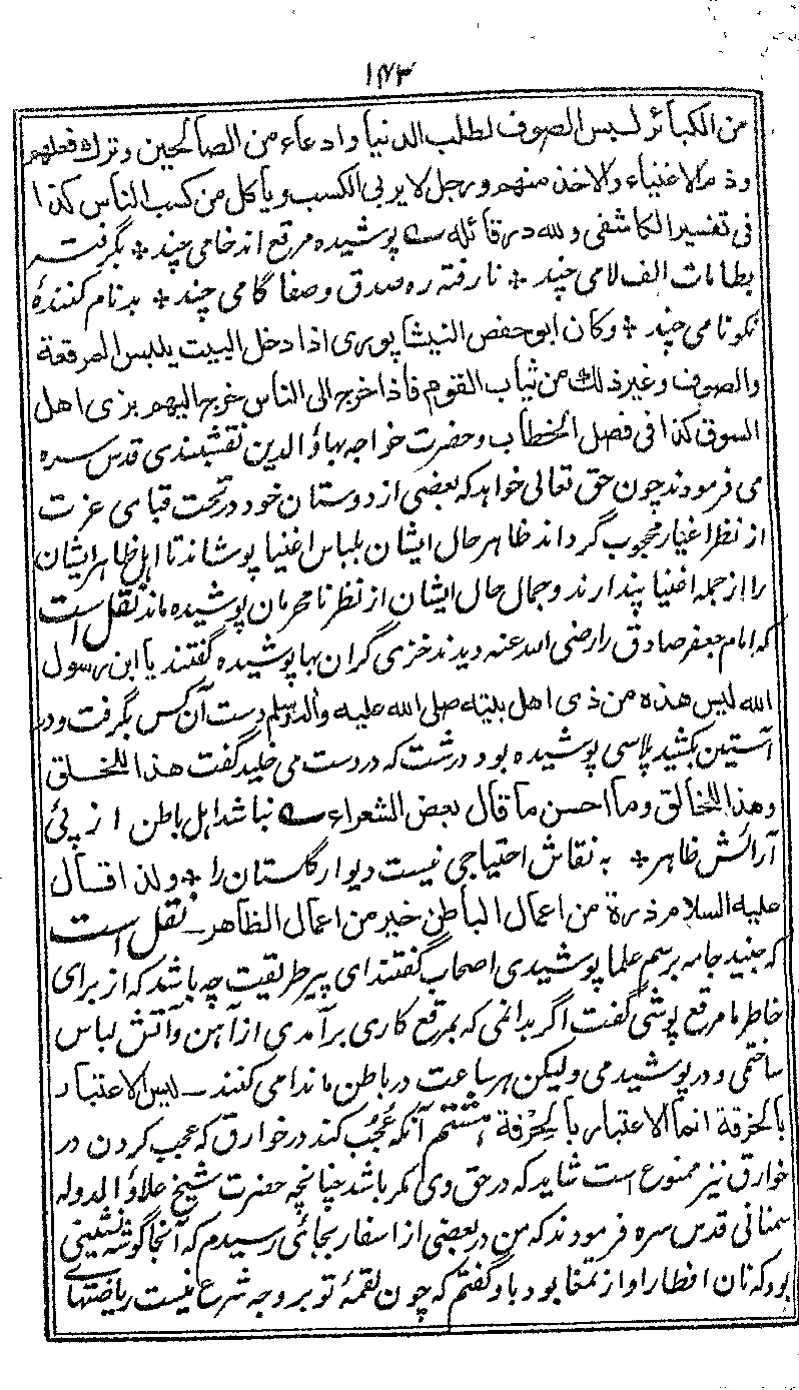 ۱۴۳
من الکبائر لبس الصوف لطلب الدنیا وادعاء من الصالحین وترک فعلهم
وذم الاغنیاء والاخذ منهم ورجل لا یری الکسب ویأکل من کسب الناس کذا
فی تفسیر الکاشفی ولله در قائله ے پوشیده مرقع اند خامی چند * بگرفته
بطامات الف لامی چند * نارفته ره صدق وصفا گامی چند * بدنام کنندهٔ
نکونامی چند * وکان ابو حفص النیشاپوری اذا دخل البیت یلبس المرقعة
والصوف وغیر ذلک من ثیاب القوم فاذا خرج الی الناس خرج الیهم بزی اهل
السوق کذا فی فصل الخطاب وحضرت خواجه بهاؤ الدین نقشبندی قدس سره
می فرمودند چون حق تعالی خواهد که بعضی از دوستان خود در تحت قبای عزت
از نظر اغیار محجوب گرداند ظاهر حال ایشان بلباس اغنیا پوشاند تا اهل ظاهر ایشان
را از جمله اغنیا پندارند وجمال حال ایشان از نظر نامحرمان پوشیده ماند نقل است
که امام جعفر صادق را رضی الله عنه دیدند خزی گران بها پوشیده گفتند یا ابن رسول
الله لیس هذه من ذی اهل بیته صلی الله علیه واله وسلم دست آن کس بگرفت ودر
آستین بکشید پلاسی پوشیده بود درشت که در دست می خلید گفت هذا للخلق
وهذا للخالق وما احسن ما قال بعض الشعراء ے نباشد اهل باطن از پئی
آرائش ظاهر * به نقاش احتیاجی نیست دیوار گلستان را * ولذا قال
علیه السلام ذرة من اعمال الباطن خیر من اعمال الظاهر ـ نقل است
که جنید جامه برسم علما پوشیدی اصحاب گفتند ای پیر طریقت چه باشد که از برای
خاطر ما مرقع پوشی گفت اگر بدانمی که بمرقع کاری برآمدی از آهن وآتش لباس
ساختمی ودر پوشیدمی ولیکن هر ساعت در باطن ما ندا می کنند ـ لیس الاعتبار
بالخرقة انما الاعتبار بالحرقة هشتم آنکه عجب کند در خوارق که عجب کردن در
خوارق نیز ممنوع است شاید که در حق وی مکر باشد چنانچه حضرت شیخ علاؤ الدوله
سمنانی قدس سره فرمودند که من در بعضی از اسفار بجائی رسیدم که آنجا گوشه نشینی
بود که نان افطار او از تمغا بود باو گفتم که چون لقمهٔ تو بر وجه شرع نیست ریاضتهای